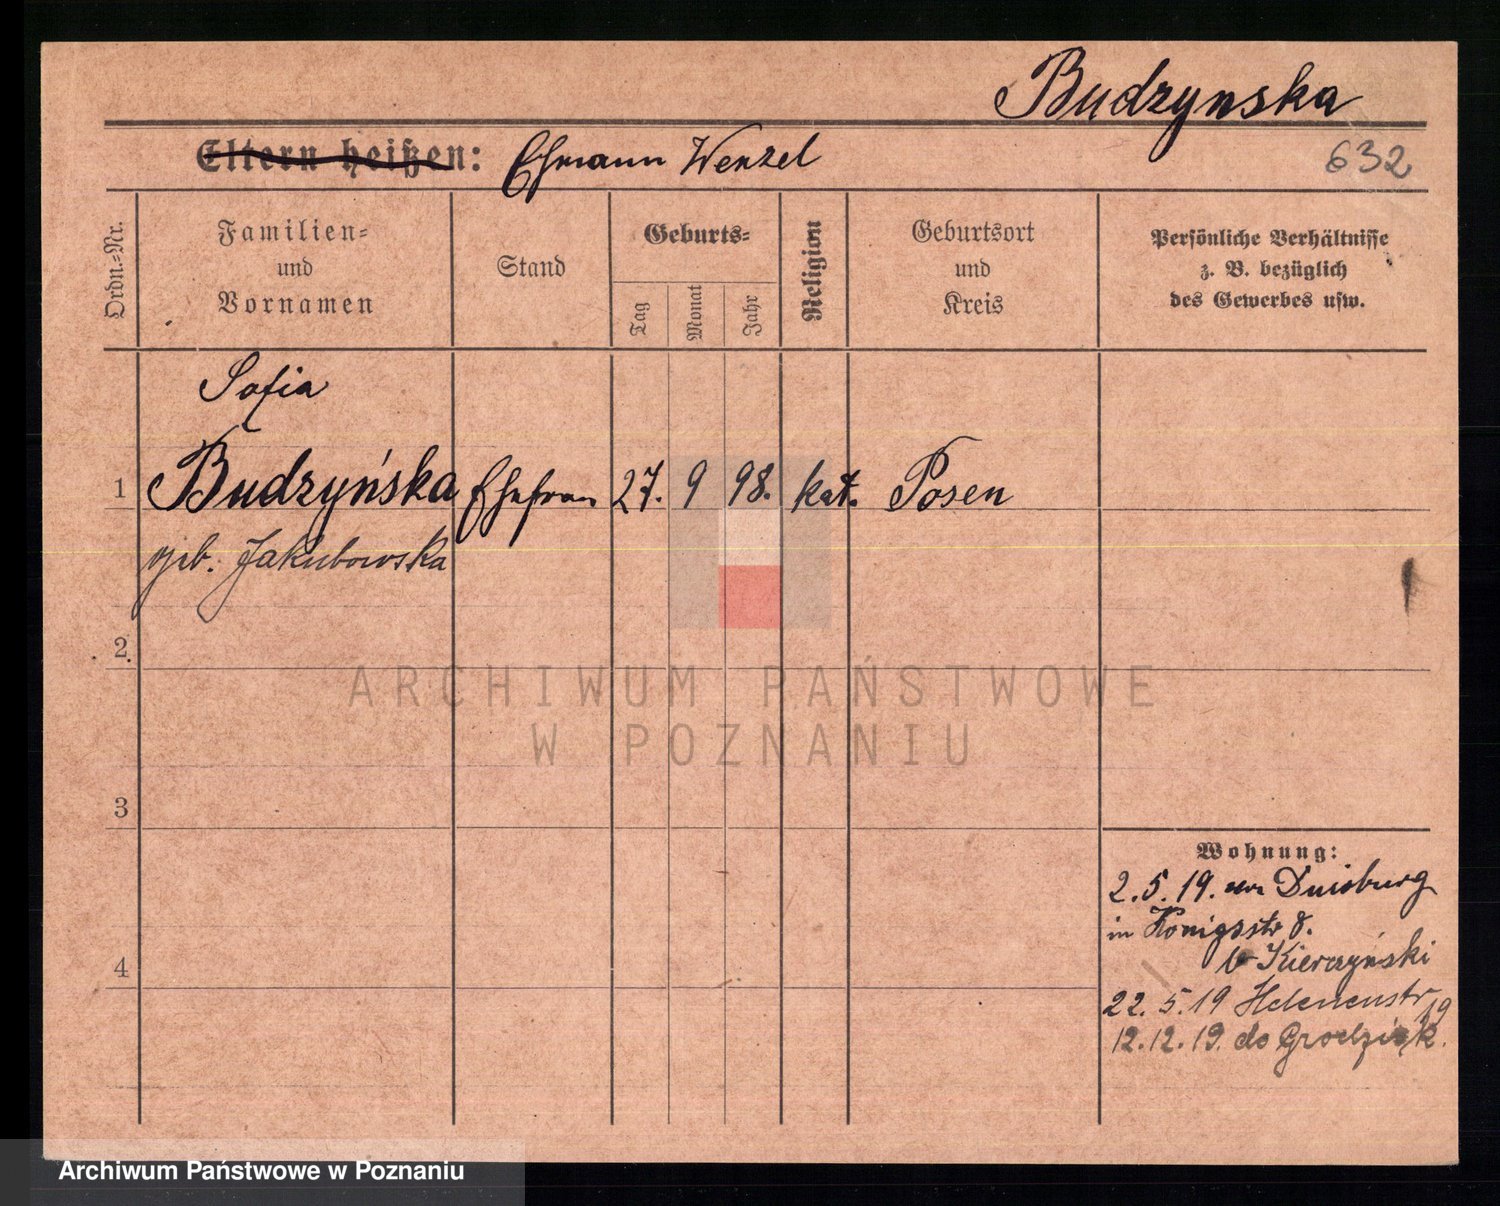 Budzynska
Eltern heißen: Ehmann Wenzel
632
Ordn.=Nr.
Familien=
und
Vornamen
Stand
Geburts=
Tag
Monat
Jahr
Religion
Geburtsort
und
Kreis
Persönliche Verhältnisse
z. B. bezüglich
des Gewerbes usw.
Sofia
1 Budzyńska Ehefrau 27. 9 98. kat. Posen
geb. Jakubowska
2
3
4
Wohnung:
2.5.19. von Duisburg
in Königsstr 8.
b Kierczyński
22.5.19 Helenenstr 19
12.12.19. do Grodzisk.
ARCHIWUM PAŃSTWOWE
W POZNANIU
Archiwum Państwowe w Poznaniu